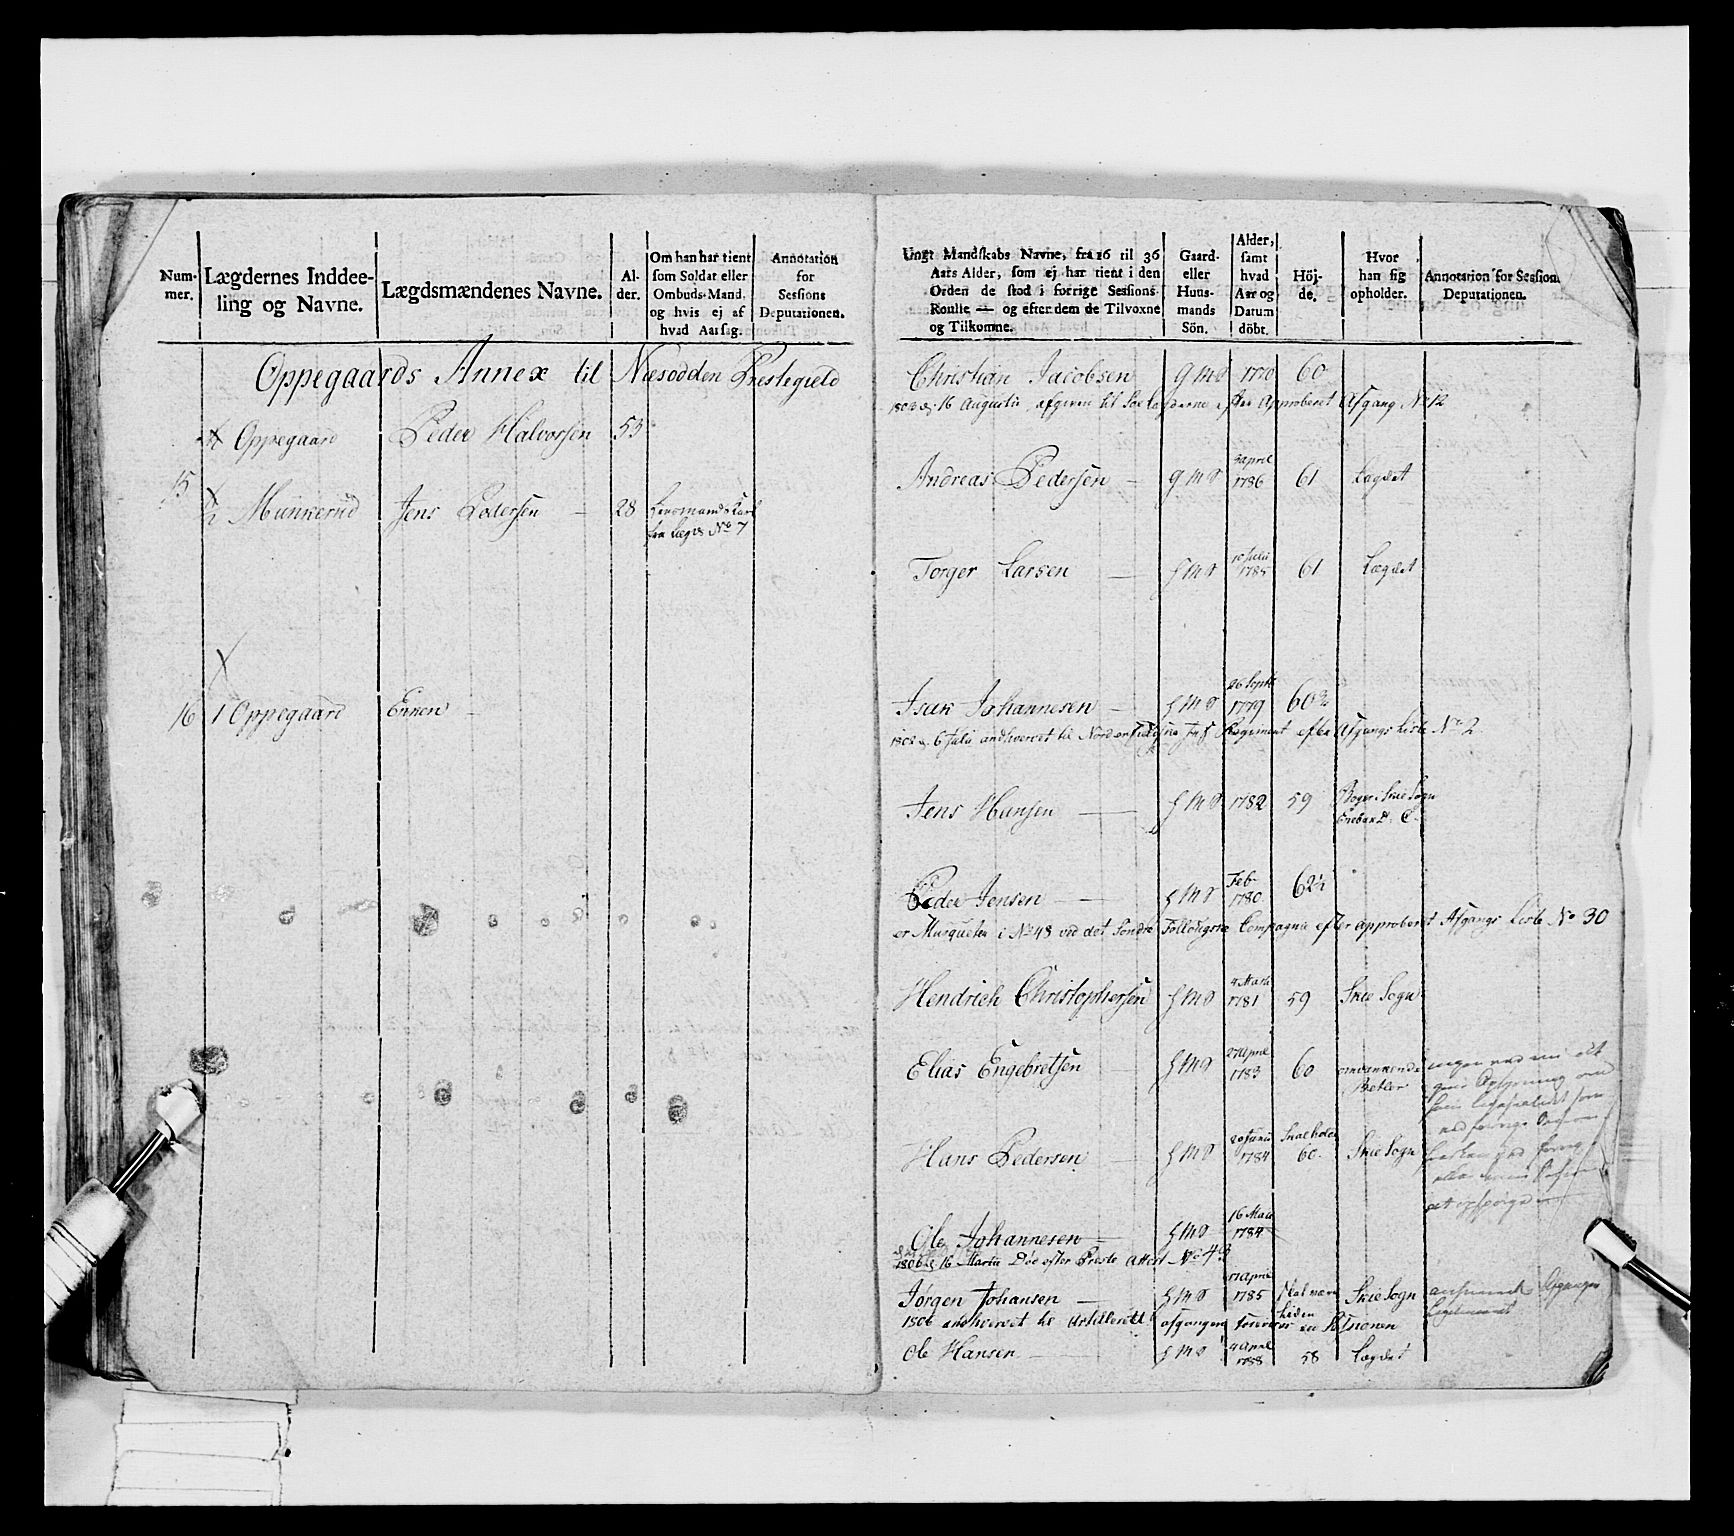 Num-
mer.
Lægdernes Inddee-
ling og Navne.
Lægdsmændenes Navne.
Al-
der.
Om han har tient
som Soldat eller
Ombuds-Mand,
og hvis ej af
hvad Aarsag.
Annotation
for
Sessions
Deputationen.
Oppegaards Annex til Næsodden Prestegield
½ Oppegaard Peder Halvorsen 53
15
½ Munkerud Jens Pedersen 28 Lensmands Karl
fra Lægd No 7
16 1 Oppegaard Enken
Ungt Mandskabs Navne, fra 16 til 36
Aars Alder, som ej har tient i den
Orden de stod i forrige Sessions-
Roulle — og efter dem de Tilvoxne
og Tilkomne.
Gaard-
eller
Huus-
mands
Sön.
Alder,
samt
hvad
Aar og
Datum
döbt.
Höj-
de.
Hvor
han sig
opholder.
Annotation for Session
Deputationen.
Christian Jacobsen g M S 1770 60
16 Augustii afgiven til Søe efter Approberet Afgang No 12
3 april
Andreas Pedersen — g M S 1786 61 Lægdet
10 Julii
Torger Larsen — h M S 1785 61 Lægdet
26 Septb
Isak Johannesen — h M S 1779 60¾
6 Julii andhvervet til Nordenfieldske Inf Regiment efter Afgangs Liste No 2
Jens Hansen — h M S 1782 59 i Skie Sogn
Feb
Peder Jensen — h M S 1780 62½
er Musqueteer i No 48 ved det Søndre Follougske Compagnie efter approberet Afgangs Liste No 30
4 Marti
Hendrich Christophersen h M S 1781 59 Skie Sogn
27 April
Elias Engebretsen h M S 1783 60 omvankende
Betler
20 Junii
Hans Pedersen — h M S 1784 60 Skie Sogn
16 Marti
Ole Johannesen — h M S 1784
1806 16 Martii Død efter Preste Attest No 43
April
Jørgen Johansen — h M S 1785 Skie Sogn
1806 andhvervet til Artilleriet
4 April
Ole Hansen — h M S 1788 58 Lægdet